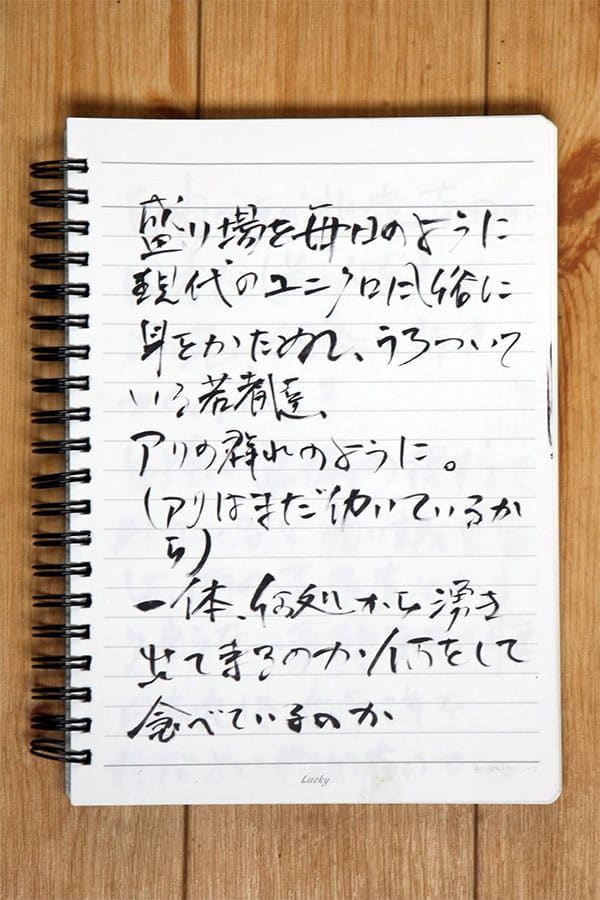 盛り場を毎日のように
現代のユニクロ風俗に
身をかためれ、うろついて
いる若者達、
アリの群れのように。
(アリはまだ働いているか
ら)
一体、何処から湧き
出て来るのか何をして
食べているのか
Lucky